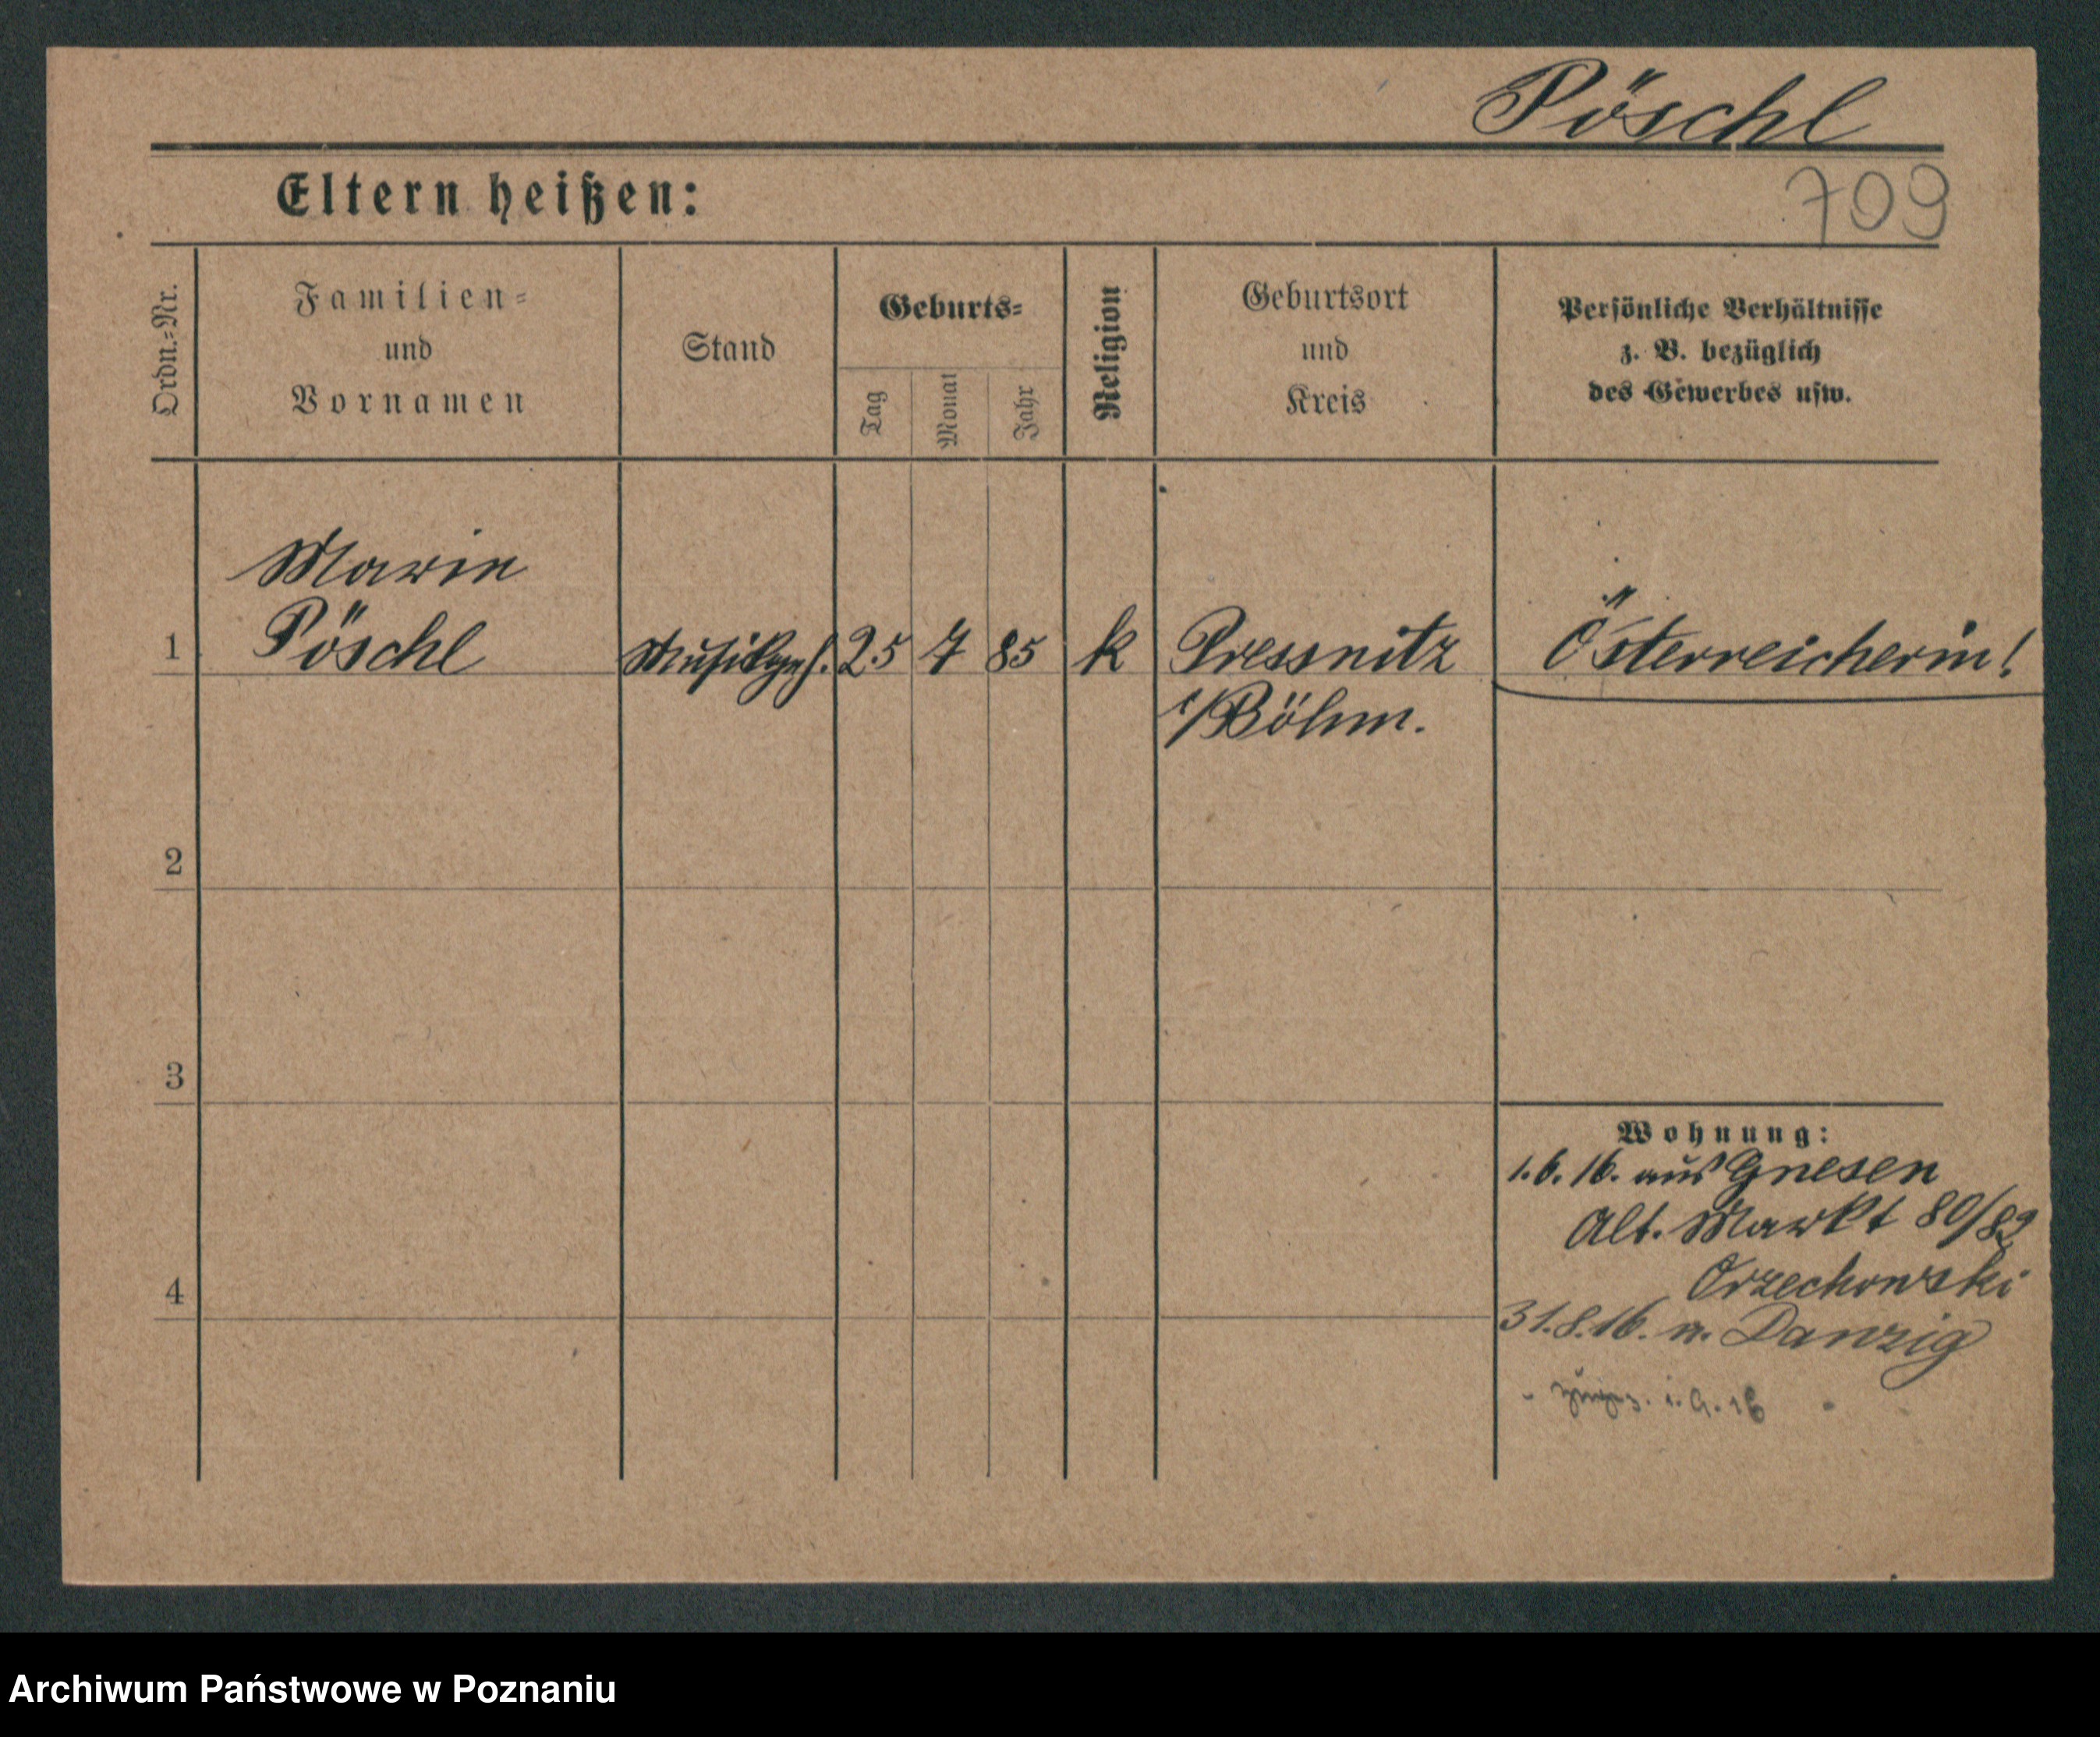 Pöschl
709
Eltern heißen:
Ordn.=Nr.
Familien=
und
Vornamen
Stand
Geburts=
Tag
Monat
Jahr
Religion
Geburtsort
und
Kreis
Persönliche Verhältnisse
z. B. bezüglich
des Gewerbes usw.
Marie
1 Pöschl 25 7 85 k Pressnitz Österreicherin!
i/Böhm.
2
3
4
Wohnung:
1.6.16. aus Gnesen
Alt. Markt 80/82
Orzechowski
31.8.16. n. Danzig
1.9.16
Archiwum Państwowe w Poznaniu